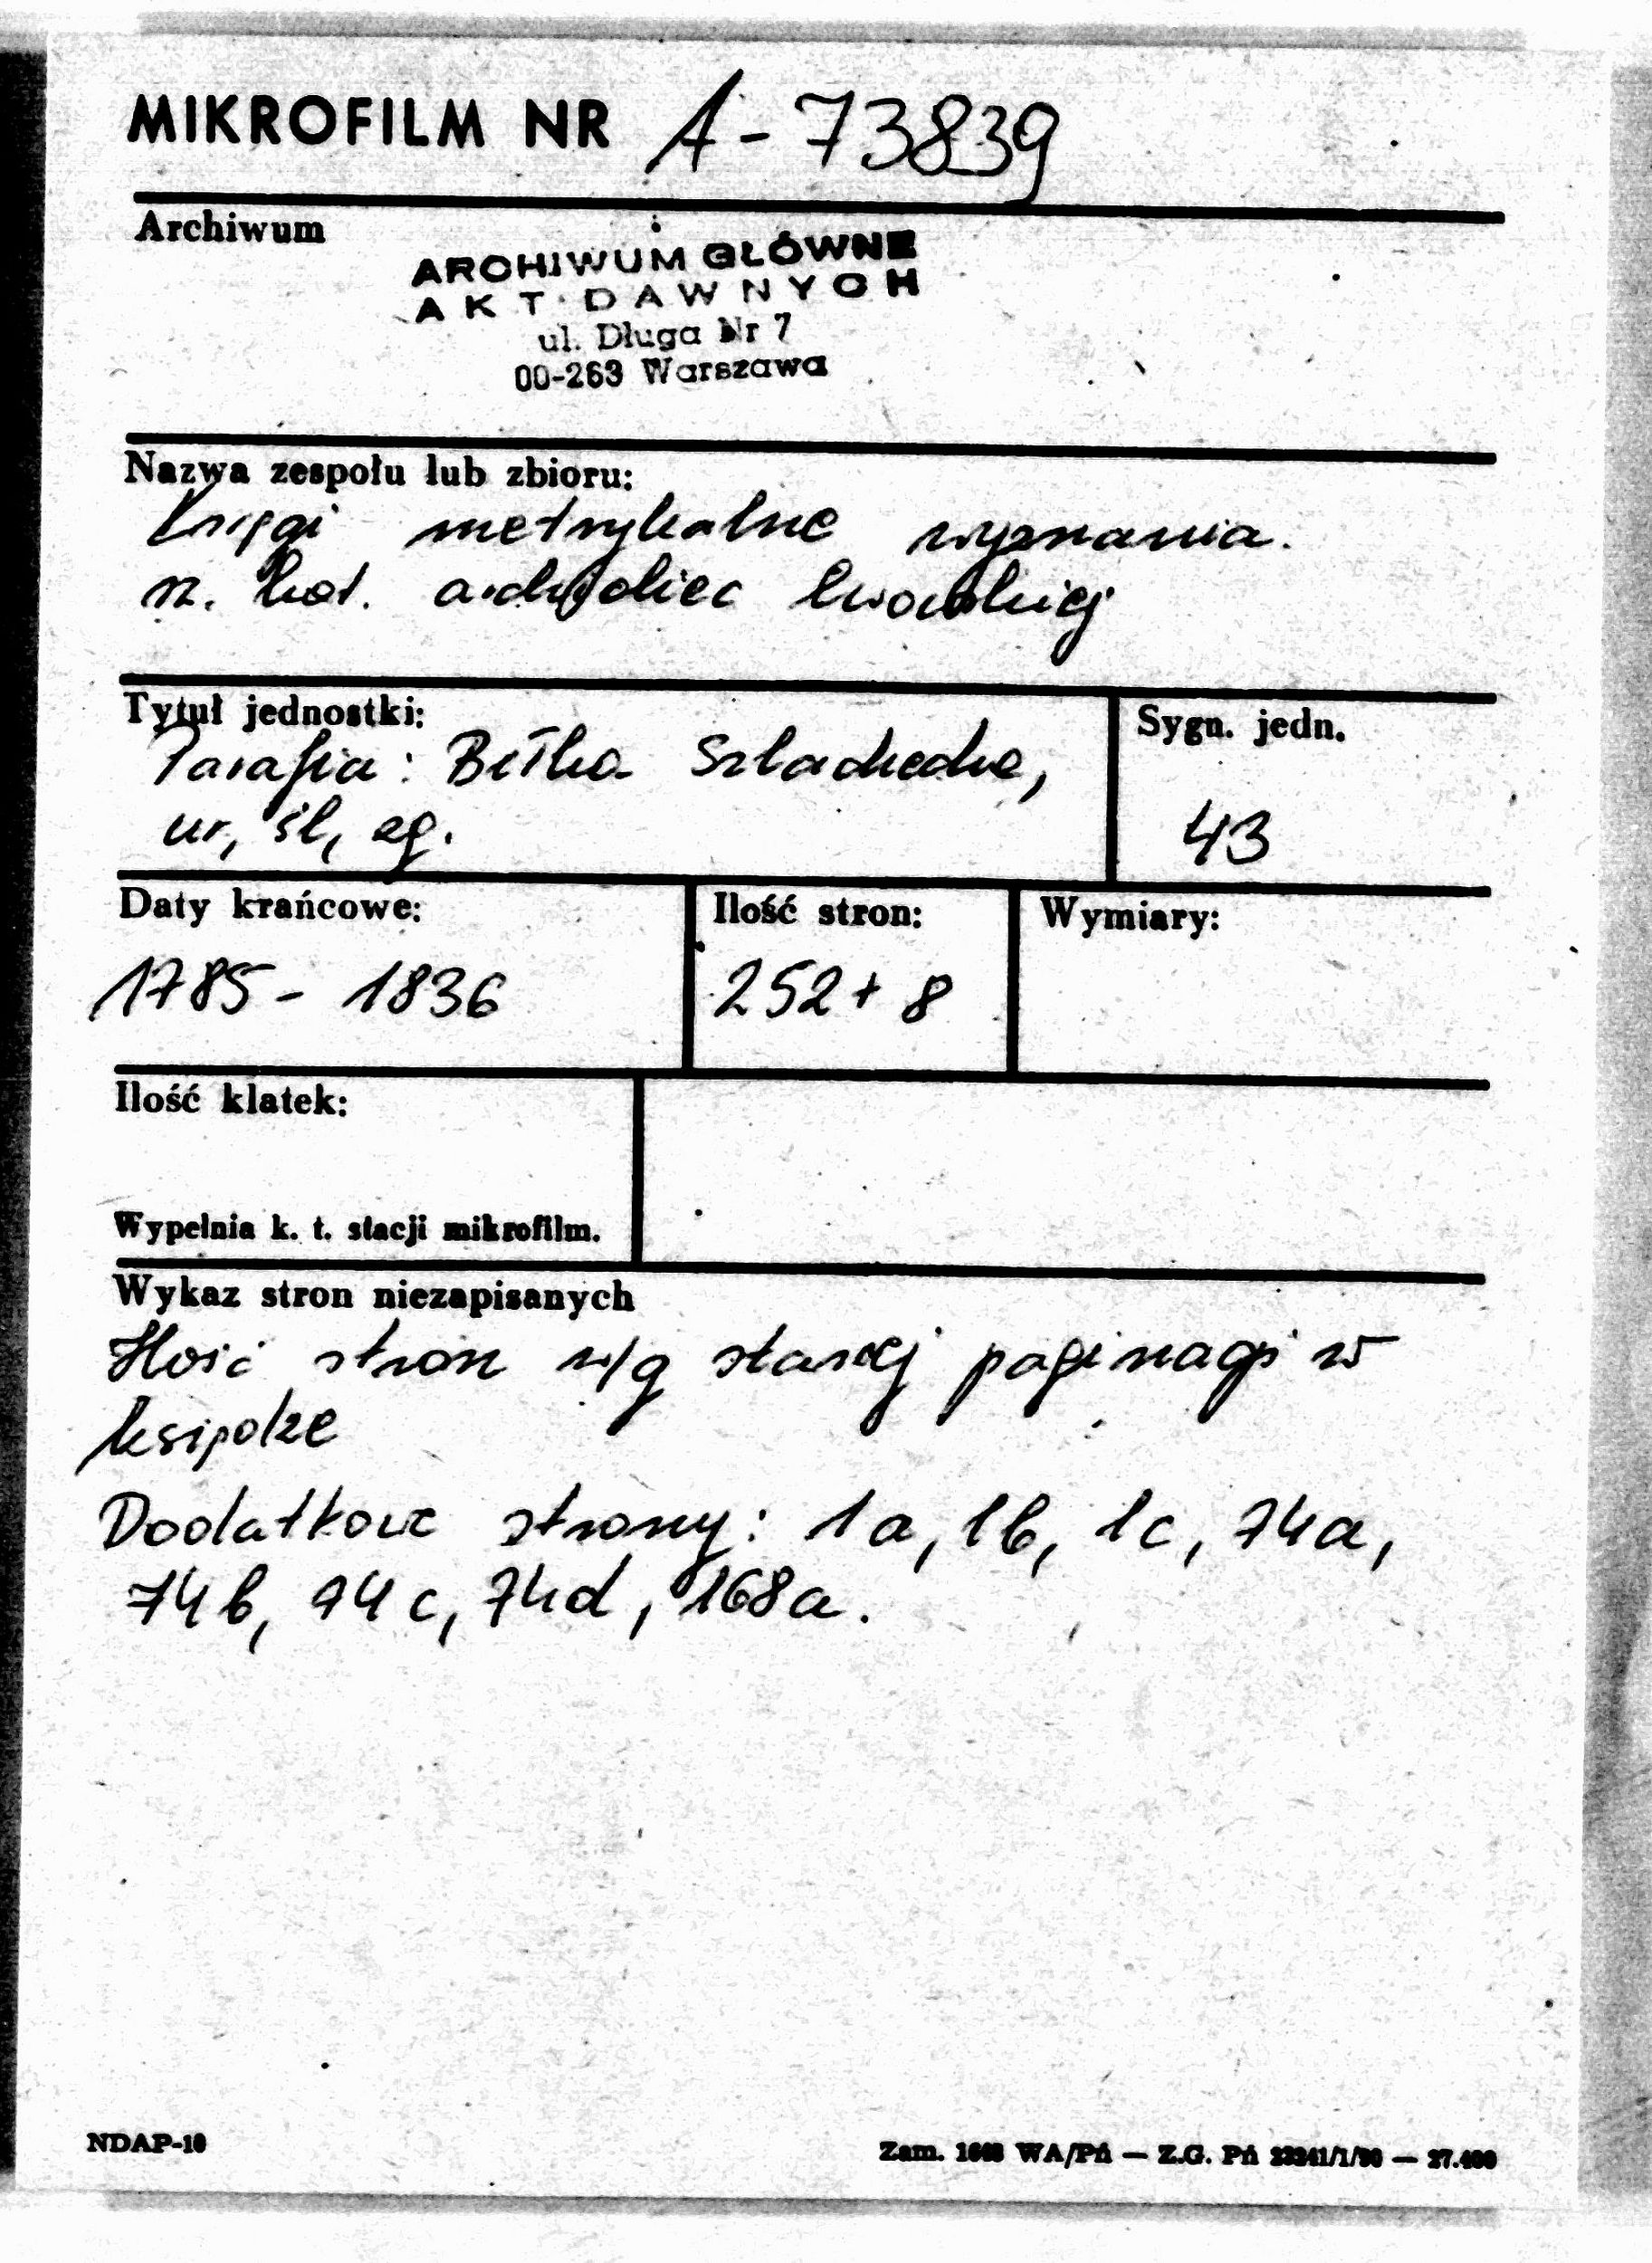 MIKROFILM NR A-73839
Archiwum
ARCHIWUM GŁÓWNE
AKT DAWNYCH
ul. Długa Nr 7
00-263 Warszawa
Nazwa zespołu lub zbioru:
Księgi metrykalne wyznania
rz. kat. archidiec lwowskiej
Tytuł jednostki:
Parafia: Biłka Szlachecka,
ur, śl, zg.
Sygn. jedn.
43
Daty krańcowe:
1785 - 1836
Ilość stron:
252 + 8
Wymiary:
Ilość klatek:
Wypełnia k. t. stacji mikrofilm.
Wykaz stron niezapisanych
Ilość stron w/g starej paginacji w
księdze
Dodatkowe strony: 1a, 1b, 1c, 74a,
74b, 74c, 74d, 168a.
NDAP-10
Zam. WA/Pń — Z.G. Pń